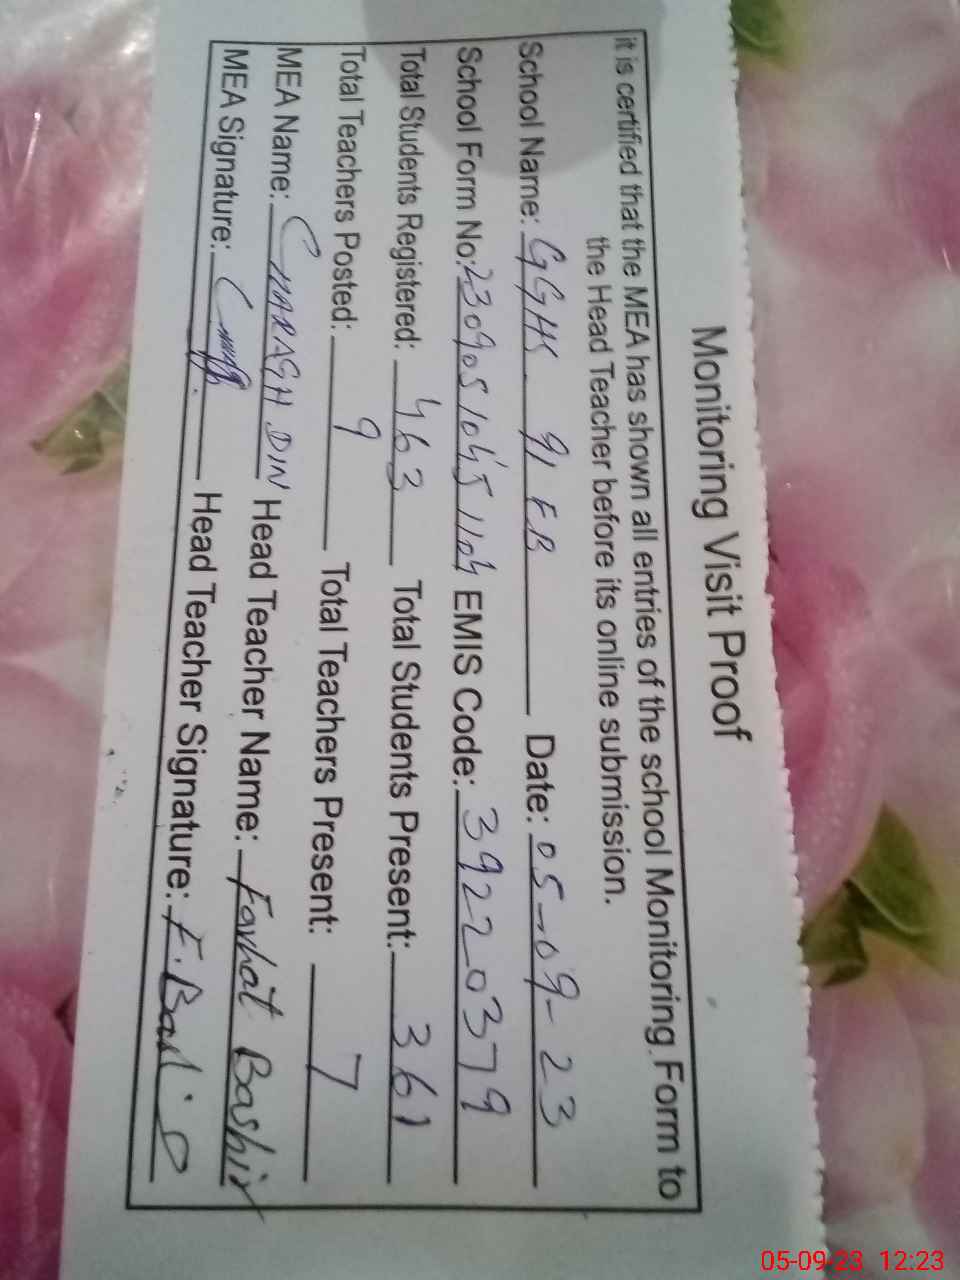 Monitoring Visit Proof
it is certified that the MEA has shown all entries of the school Monitoring Form to
the Head Teacher before its online submission.
School Name: GGHS 91 EB Date: 05-09-23
School Form No: 23090510451104 EMIS Code: 39220379
Total Students Registered: 463 Total Students Present: 361
Total Teachers Posted: 9 Total Teachers Present: 7
MEA Name: CHARAGH DIN Head Teacher Name: Farhat Bashir
MEA Signature: Head Teacher Signature: F.
05-09-23 12:23